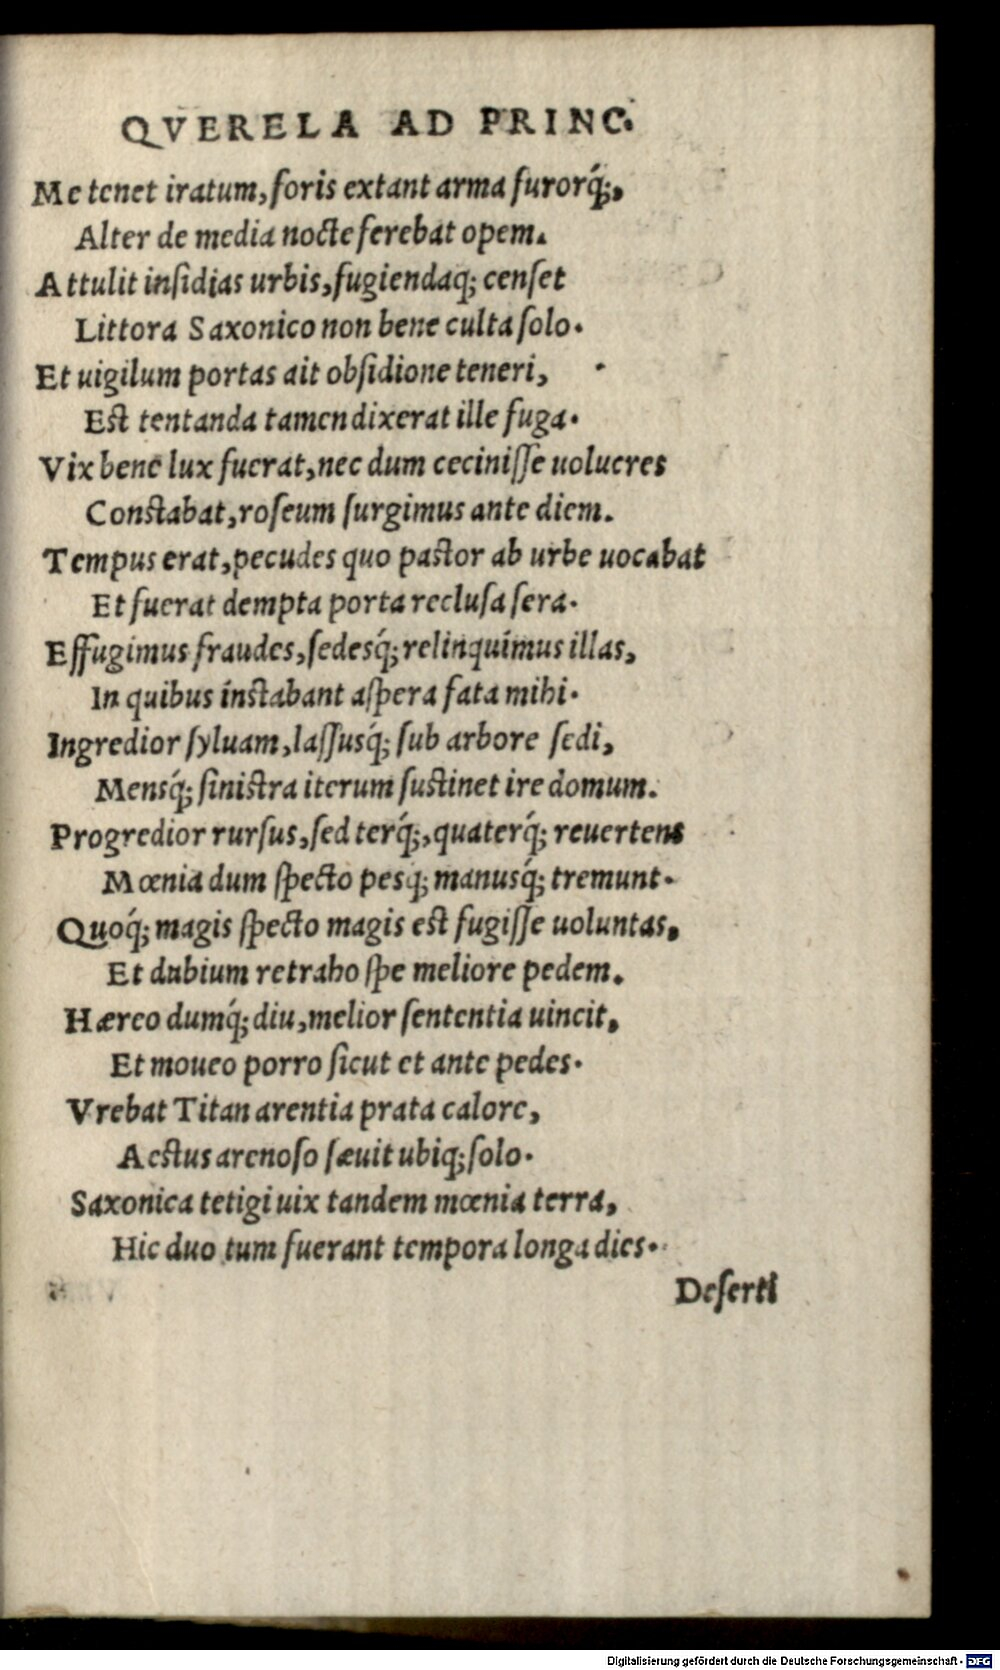 QVERELA AD PRINC.
Me tenet iratum, foris extant arma furorq́;,
Alter de media nocte ferebat opem.
Attulit insidias urbis, fugiendaq; censet
Littora Saxonico non bene culta solo.
Et uigilum portas ait obsidione teneri,
Est tentanda tamen dixerat ille fuga.
Vix bene lux fuerat, nec dum cecinisse uolucres
Constabat, roseum surgimus ante diem.
Tempus erat, pecudes quo pastor ab urbe uocabat
Et fuerat dempta porta reclusa sera.
Effugimus fraudes, sedesq́; relinquimus illas,
In quibus instabant aspera fata mihi.
Ingredior syluam, lassusq́; sub arbore sedi,
Mensq́; sinistra iterum sustinet ire domum.
Progredior rursus, sed terq́;, quaterq́; reuertens
Mœnia dum specto pesq; manusq́; tremunt.
Quoq́; magis specto magis est fugisse uoluntas,
Et dubium retraho spe meliore pedem.
Hæreo dumq́; diu, melior sententia uincit,
Et moueo porro sicut et ante pedes.
Vrebat Titan arentia prata calore,
Aestus arenoso sæuit ubiq; solo.
Saxonica tetigi uix tandem mœnia terra,
Hic duo tum fuerant tempora longa dies.
Deserti
Digitalisierung gefördert durch die Deutsche Forschungsgemeinschaft - DFG